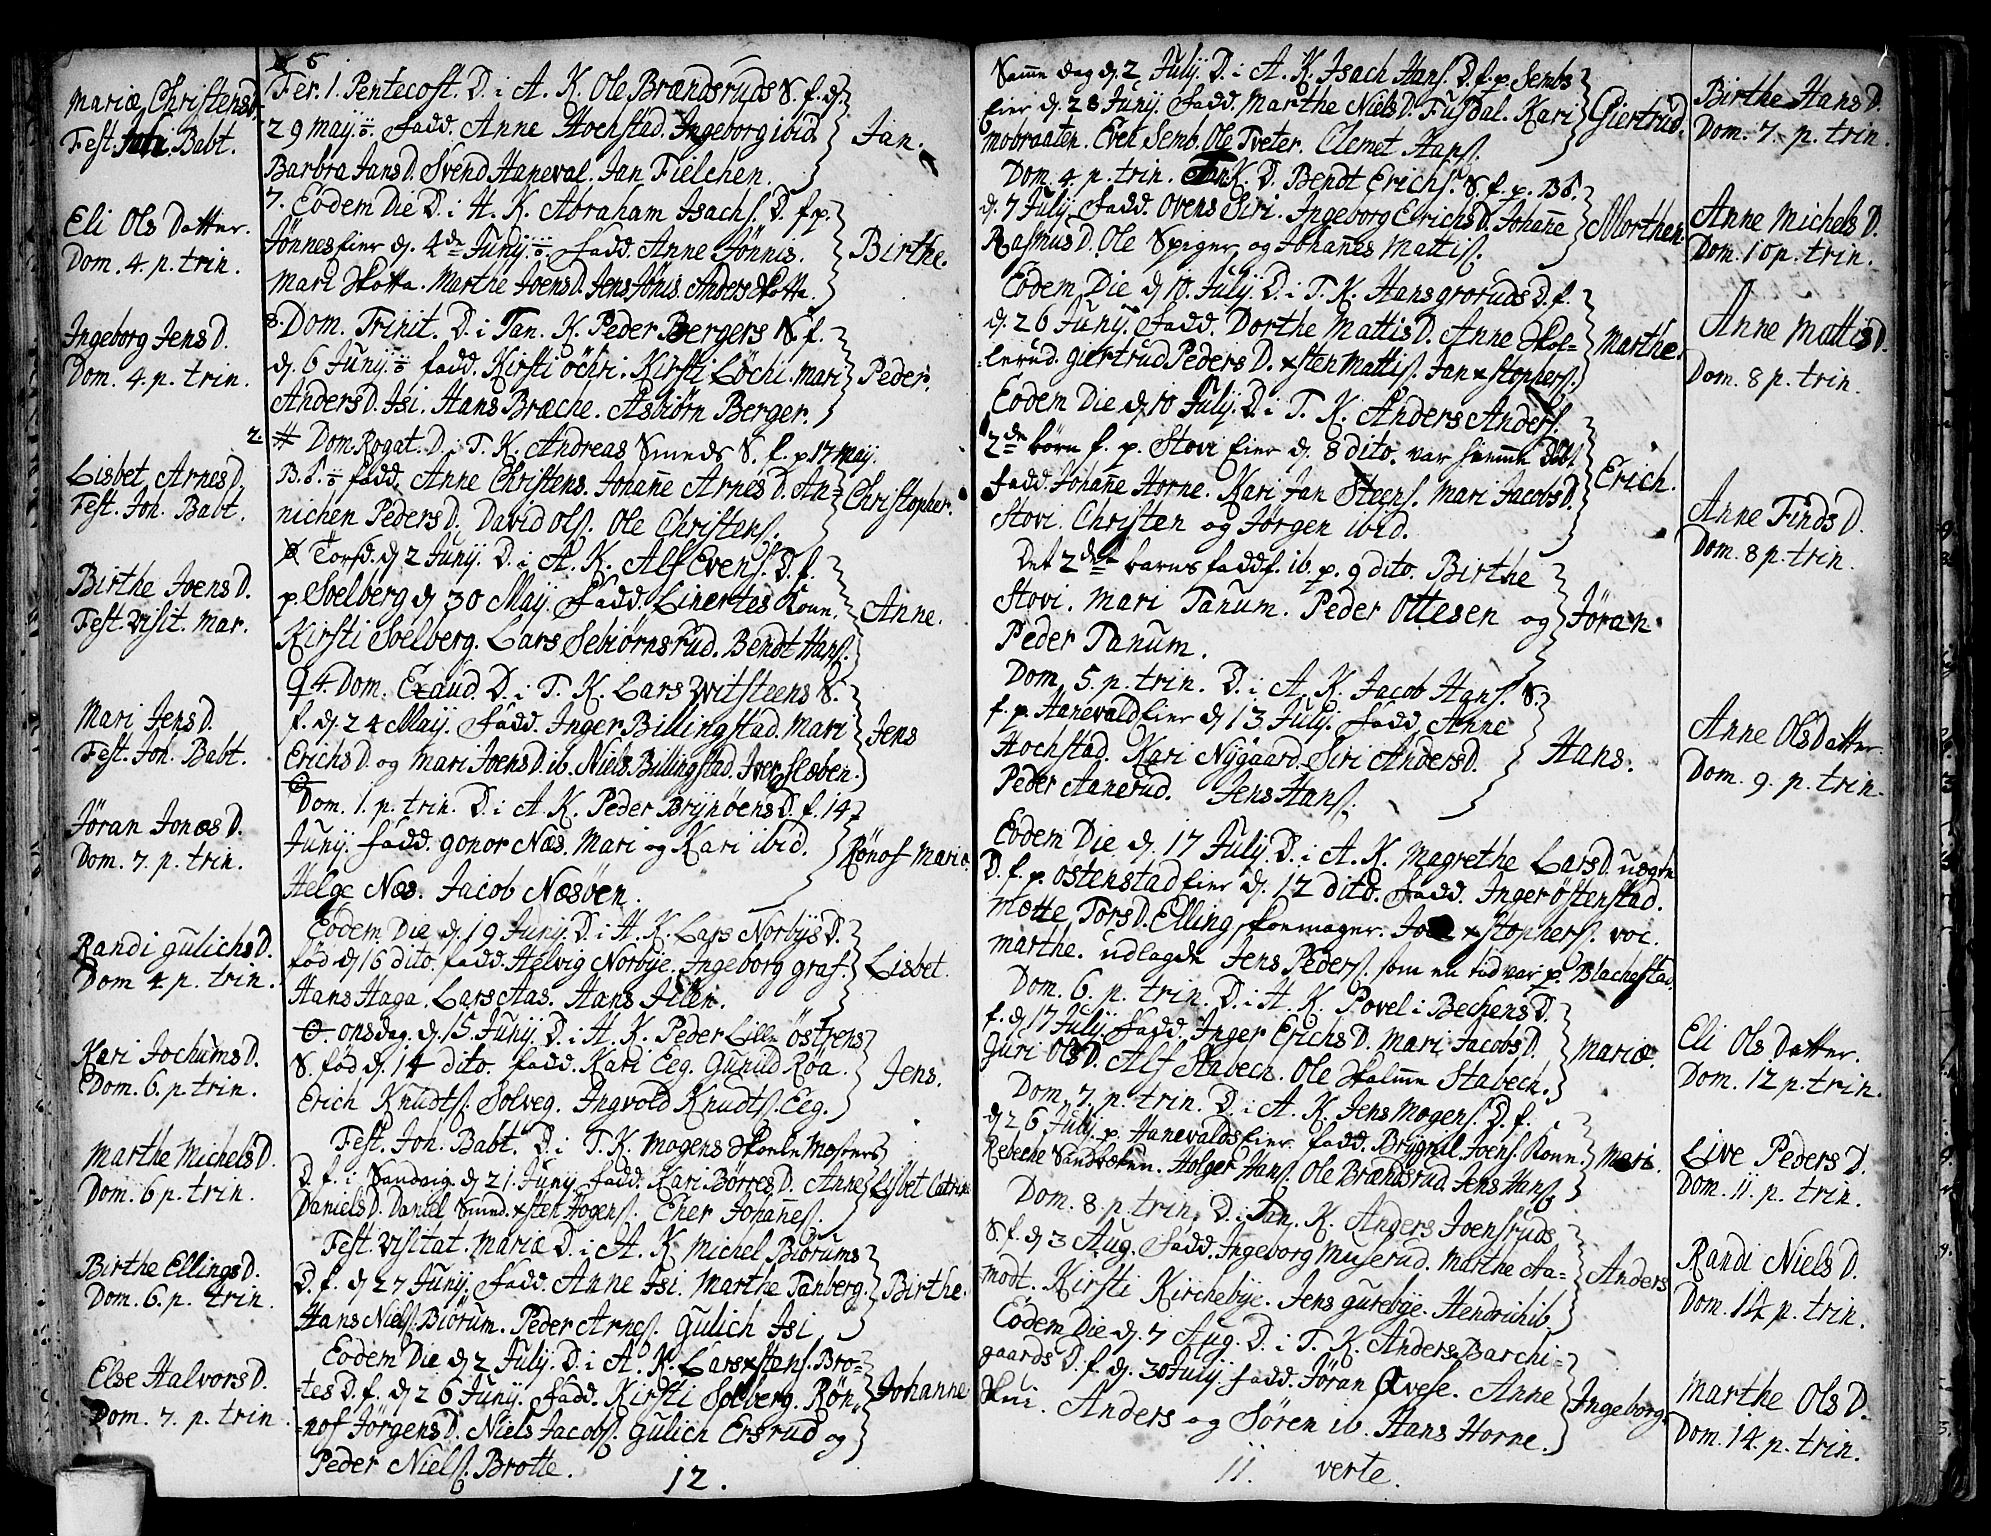 Mariæ Christensd.
Fest. Joh. Babt.
Eli Ols Datter.
Dom. 4. p. trin.
Ingeborg Jens D.
Dom. 4. p. trin.
Lisbet Arnes D.
Fest. Joh. Babt.
Birthe Joens D.
Fest. visit. Mar.
Mari Jens D.
Fest. Joh. Babt.
Jöran Jonæs D.
Dom. 7. p. trin.
Randi gulichs D.
Dom 4. p. trin.
Kari Jochums D.
Dom. 6. p. trin.
Marthe Michels D.
Dom. 6 p. trin.
Birthe Ellings D.
Dom. 6. p. trin.
Else Halvors D.
Dom. 7. p. trin.
6
Fer. 1. Pentecost. D. i A. K. Ole Brændsruds S. f. d.
29 Maij. Fadd. Anne Hochstad. Ingeborg ibid. Jan.
Barbra Jans D. Svend Haneval. Jan Fielchen.
7. Eodem Die D. i H. K. Abraham Isachs. D. f. p.
Jönnes Eier d. 4de Junij. Fadd. Anne Jönnis. Birthe.
Mari Skotta. Marthe Joens D. Jens Jönis. Anders Skotta.
8. Dom. Trinit. D. i Tan. K. Peder Bergers S. f.
d. 6 Junij. fadd. Kirsti öchri. Kirsti Löchi. Mari Peder.
Anders D. Isi. Hans Bræche. Asbiörn Berger.
2. # Dom. Rogat. D. i T. K. Andreas Smeds S. f. p 17 Maij.
B. fadd. Anne Christens. Johañe Arnes D. An= Christopher.
nichen Peders D. David Ols. Ole Christens.
Torsd. d 2 Junij. D. i A. K. Alf Evens. D. f.
p. Solberg d 30 Maij. Fadd. Linertes Kone. Anne.
Kirsti Soelberg. Lars Sebiörnsrud. Bendt Hans.
4. Dom. Exaud. D. i T. K. Lars Witsteens S.
f. d. 24 Maij. Fadd. Inger Billingstad. Mari Jens
Erichs D. og Mari Joens D. ib. Niels Billingstad. Iver Sleben.
Dom. 1. p. trin. D. i A. K. Peder Brynöens D. f. 14
Junij. Fadd. gonor Næs. Mari og Kari ibid. Rönof Mariæ
Helge Næs. Jacob Næsöen.
Eodem Die d. 19 Junij. D. i H. K. Lars Norbys D.
fød d 16 dito. fadd. Helvig Norbye. Ingeborg graf. Lisbet.
Hans Haga. Lars Aas. Hans Jilen.
onsdag. d. 15. Junij. D. i H. K. Peder Lille östrens
S. fød d. 14 dito. fadd. Kari Eeg. Gunild Röa. Jens.
Erich Knudts. Solveg. Ingvold Knudts. Eeg.
Fest. Joh. Babt. D. i T. K. Mogens Skoele Mesters
D. f. i Sandvig d 21. Junij fadd. Kari Börres D. Anne Lisbet Catrin
Daniels D. Daniel Smed. xsten Hogens. Ener Johañes.
Fest. visitat. Mariæ D. i H. K. Michel Biörums
D. f. d 27 Junij. Fadd. Anne Isi. Marthe Tanberg. Birthe.
Hans Niels. Biörum. Peder Arnes. Gulich Isi
Eodem Die d 2 Julij. D. i A. K. Lars xstens. Bro=
=tes D. f. d 26 Junij. Fadd. Kirsti Solberg. Rön= Johanne
=nof Jörgens D. Niels Jacobs. Gulich Ersrud og
Peder Niels. Brotte.
12.
Same dag d. 2 Julij. D. i A. K. Isach Hans. D. f. p. Sembs
Eier d. 28 Junij. Fadd. Marthe Niels D. Fusdal. Kari Giertrud.
Mobraaten. Even Semb. Ole Tveter. Clemet Hans.
Dom. 4. p. trin. Tan K. D. Bendt Erichs. S. f. p. B
d. 7 Julij. Fadd. Ovens Siri. Ingeborg Erichs D. Johañe Morthen.
Rasmus D. Ole Spiger og Johañes Mattis.
Eodem Die d 10. Julij. D. i T. K. Hans groruds D. f.
d. 26 Junij. Fadd. Dorthe Mattis D. Anne Skol= Marthe.
=lerud. giertrud Peders D. xsten Mattis. Jan xstophers.
Eodem Die d 10 Julij. D. i T. K. Anders Anders.
2de börn f. p. Stovi Eier d. 8 dito. var hiemme Döbt
Fadd. Johañe Horne. Kari Jan Steens. Mari Jacobs D. Erich.
Stovi. Christen og Jörgen ibid.
Det 2det barns fadd. f. ib. p. 9 dito. Birthe
Stovi. Mari Tanum. Peder Ottesen og Jöran
Peder Tanum.
Dom. 5. p. trin. D. i A. K. Jacob Hans. S.
f. p. Hanevald Eier d 13 July. Fadd. Anne
Hochstad. Kari Nygaard. Siri Anders D. Hans.
Peder Aanerud. Jens Hans.
Eodem Die d. 17 Julij. D. i A. K. Magrethe Lars D. uægte
D. f. p. östenstad Eier d. 12 dito. Fadd. Inger östenstad.
Mette Tors D. Elling Skoemager. xstophers. voi.
Marthe. udlagde Jens Peders. som en tid var p. Blachestad.
Dom. 6. p. trin. D. i H. K. Povel i Bechens D.
f. d 17 Julij. Fadd. Inger Erichs D. Mari Jacobs D. Mariæ.
Guri Ols D. Alf Stabech. Ole Skalme Stabech.
Dom. 7. p. trin. D. i A. K. Jens Mogens. D. f.
d 26 July. p. Hanevalds Eier. fadd. Brygnil Joens. Kone. Mari.
Rebeche Sandvæken. Holger Hans. Ole Brændsrud. Jens Hans
Dom. 8. p. trin. D. i Tan. K. Anders Joensruds
S. f. d 3 Aug. Fadd. Ingeborg Muserud. Marthe Aa= Anders
modt. Kirsti Kirchebÿe. Jens gurebÿe. Hendrich ib.
Eodem Die d. 7 Aug. D. i T. K. Anders Barchi=
gaards D. f. d. 30 Julij. Fadd. Jöran Qvese. Anne Ingeborg.
Skui. Anders og Sören ib. Hans Horne.
11. verte.
Birthe Hans D.
Dom. 7. p. trin.
Anne Michels D.
Dom. 10 p. trin.
Anne Mattis D.
Dom. 8 p. trin.
Anne Finds D.
Dom. 8 p. trin.
Anne Ols Datter.
Dom. 9. p. trin.
Eli Ols Datter.
Dom. 12 p. trin.
Live Peders D.
Dom. 11. p. trin.
Randi Niels D.
Dom. 14 p. trin.
Marthe Ols D.
Dom. 14. p. trin.